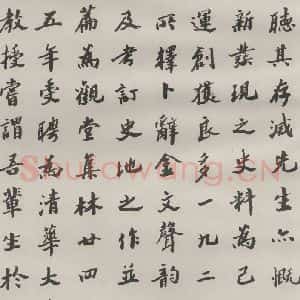 聽其存滅先生亦慨
新發現之史料為己
運創獲良多一九二
所擇卜辭金文聲韵
及考訂史地之作並
篇為觀堂集林廿四
五年受聘為清華大
教授嘗謂吾輩生於
Shufawang.CN